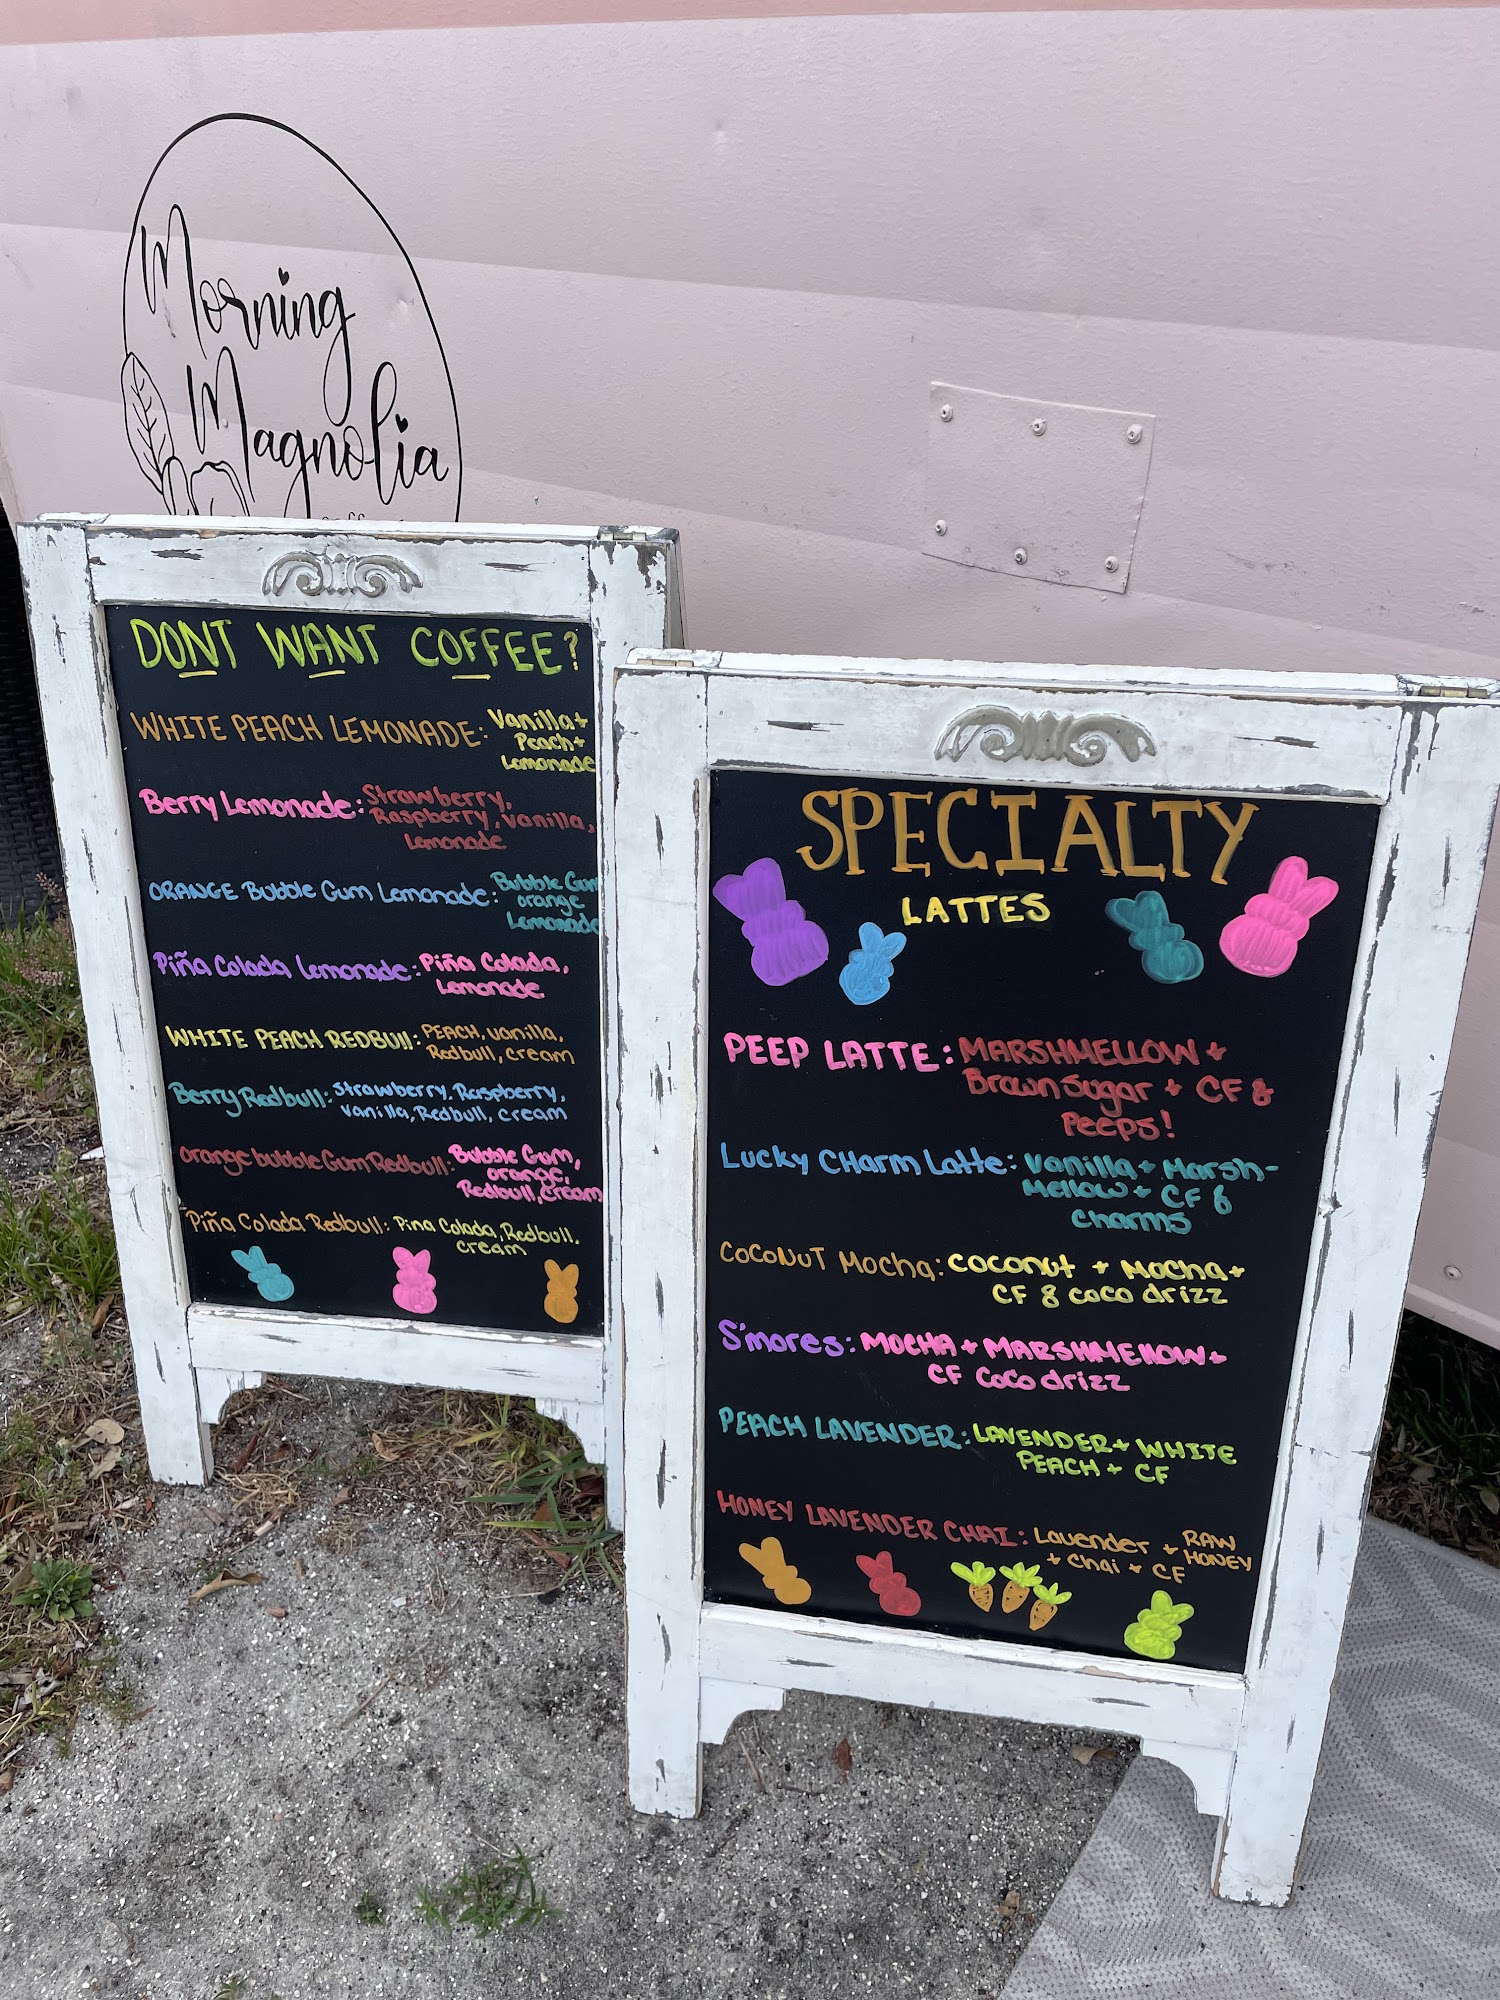 Morning
Magnolia
DONT WANT COFFEE?
WHITE PEACH LEMONADE: Vanilla +
Peach +
Lemonade
Berry Lemonade: Strawberry,
Raspberry, vanilla,
Lemonade
ORANGE Bubble Gum Lemonade: Bubble Gum
orange
Lemonade
Piña Colada Lemonade: Piña Colada,
Lemonade
WHITE PEACH REDBUll: PEACH, vanilla,
Redbull, cream
Berry Redbull: Strawberry, Raspberry,
vanilla, Redbull, cream
orange bubble Gum Redbull: Bubble Gum,
orange,
Redbull, cream
Piña Colada Redbull: Pina Colada, Redbull.
cream
SPECIALTY
LATTES
PEEP LATTE: MARSHMELLOW +
Brown Sugar + CF &
Peeps!
Lucky CHarm Latte: Vanilla + Marsh-
Mellow + CF &
charms
COCONUT Mocha: coconut + Mocha +
CF & coco drizz
S'mores: MOCHA + MARSHMEllOW +
CF coco drizz
PEACH LAVENDER: LAVENDER + WHITE
PEACH + CF
HONEY LAVENDER CHAI: Lavender + RAW
HONEY
+ chai + CF